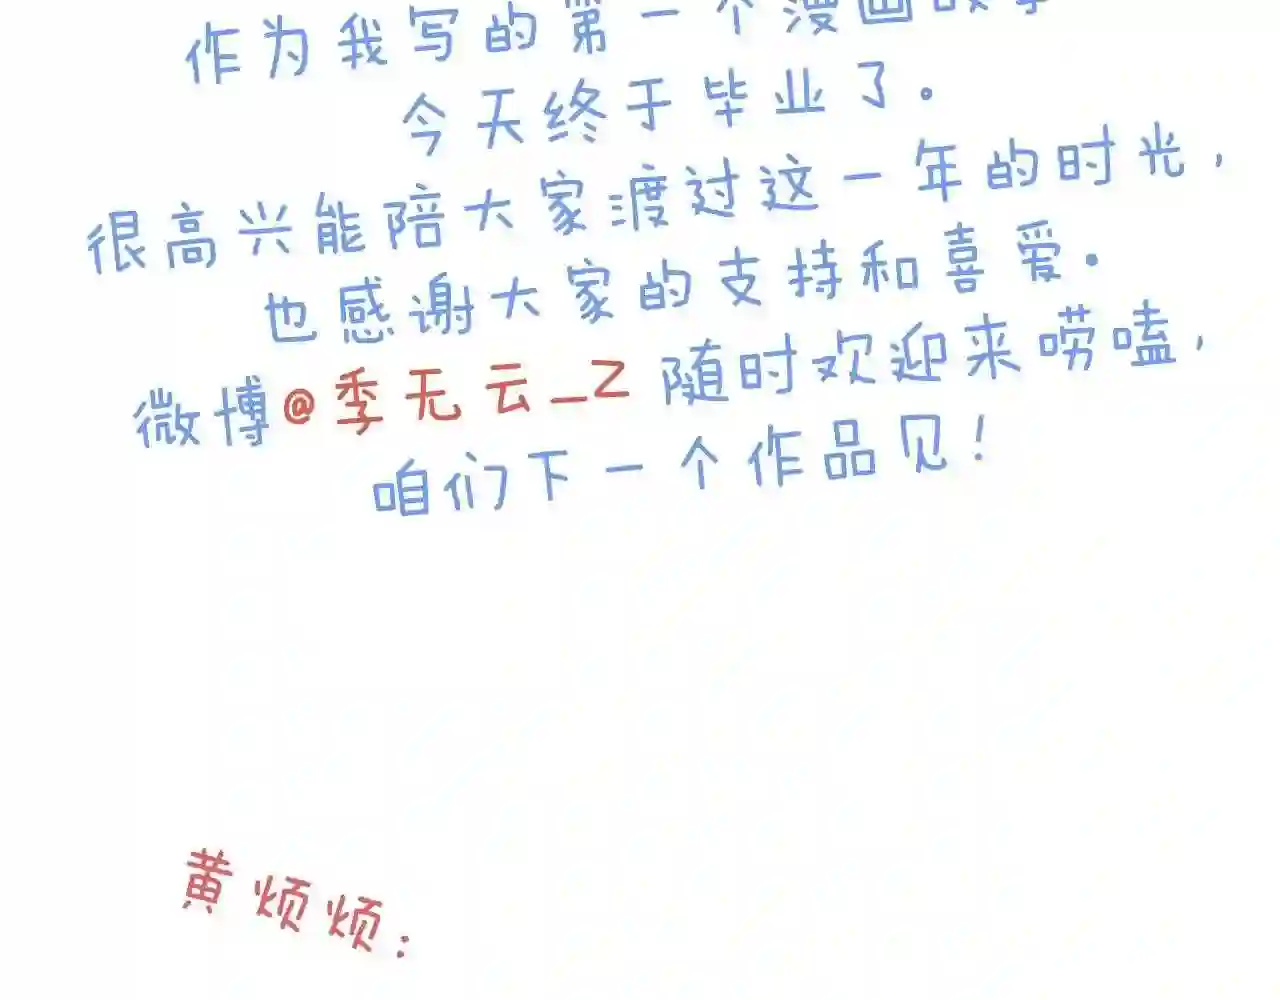 作为我写的第一个漫画故事
今天终于毕业了。
很高兴能陪大家渡过这一年的时光,
也感谢大家的支持和喜爱.
微博@季无云_Z 随时欢迎来唠嗑,
咱们下一个作品见!
黄烦烦: